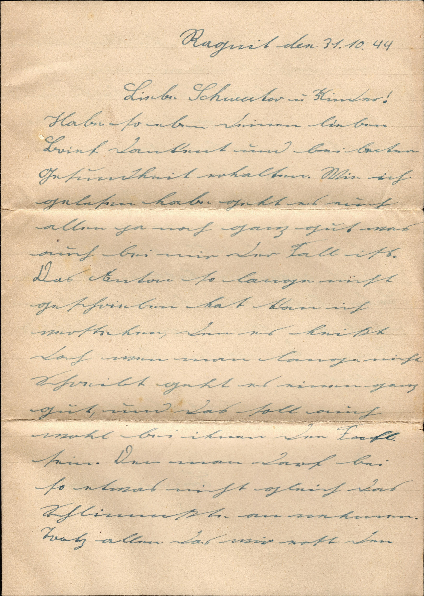 Ragnit den 31.10.44
Liebe Schwester u Kinder!
Habe so eben deinen lieben
Brief dankent und bei bester
Gesundheit erhalten. Wie ich
gelesen habe geht es euch
allen ja noch ganz gut was
auch bei mir der Fall ist.
Das Anton so lange nicht
geschrieben hat kan ich
verstehen, den es heißt
doch wen man lange nicht
schreibt geht es einen ganz
gut, und das soll auch
wohl bei ihnen der Fall
sein. Den man darf bei
so etwas nicht gleich das
Schlimmste an nehmen.
Trotz allen das wir oft den